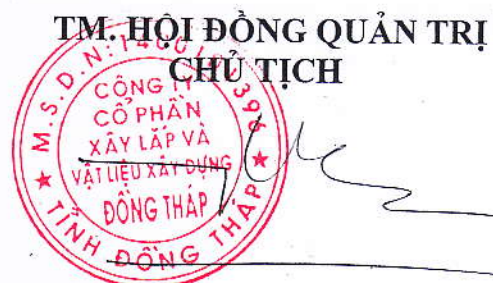 TM. HỘI ĐỒNG QUẢN TRỊ
CHỦ TỊCH
M.S.D.N:
CÔNG TY
CỔ PHẦN
XÂY LẮP VÀ
VẬT LIỆU XÂY DỰNG
ĐỒNG THÁP
TỈNH ĐỒNG THÁP